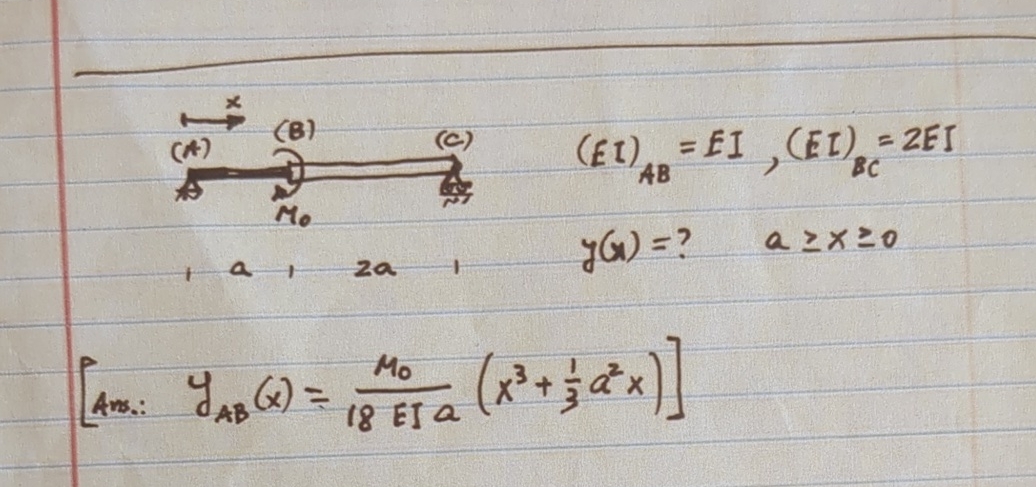 x
(A) (B) (C)
M₀
a 2a
(EI)_AB = EI , (EI)_BC = 2EI
y(x) = ? a ≥ x ≥ 0
[Ans.: y_AB (x) = M₀ / 18 EI a (x³ + 1/3 a² x)]